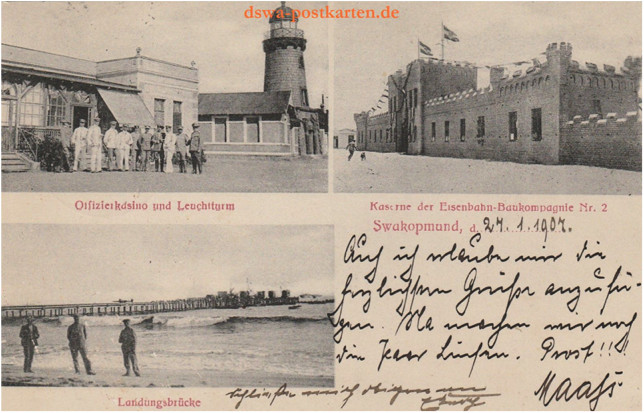 dswa-postkarten.de
Offizierkasino und Leuchtturm
Kaserne der Eisenbahn-Baukompagnie Nr. 2
Swakopmund, d. 27.1.1907.
Auch ich erlaube mir die
herzlichsten Grüße anzufü-
gen. Na machen wir noch
die paar Linsen. Prost!!!
Maaß
Landungsbrücke
schließe mich obigem an